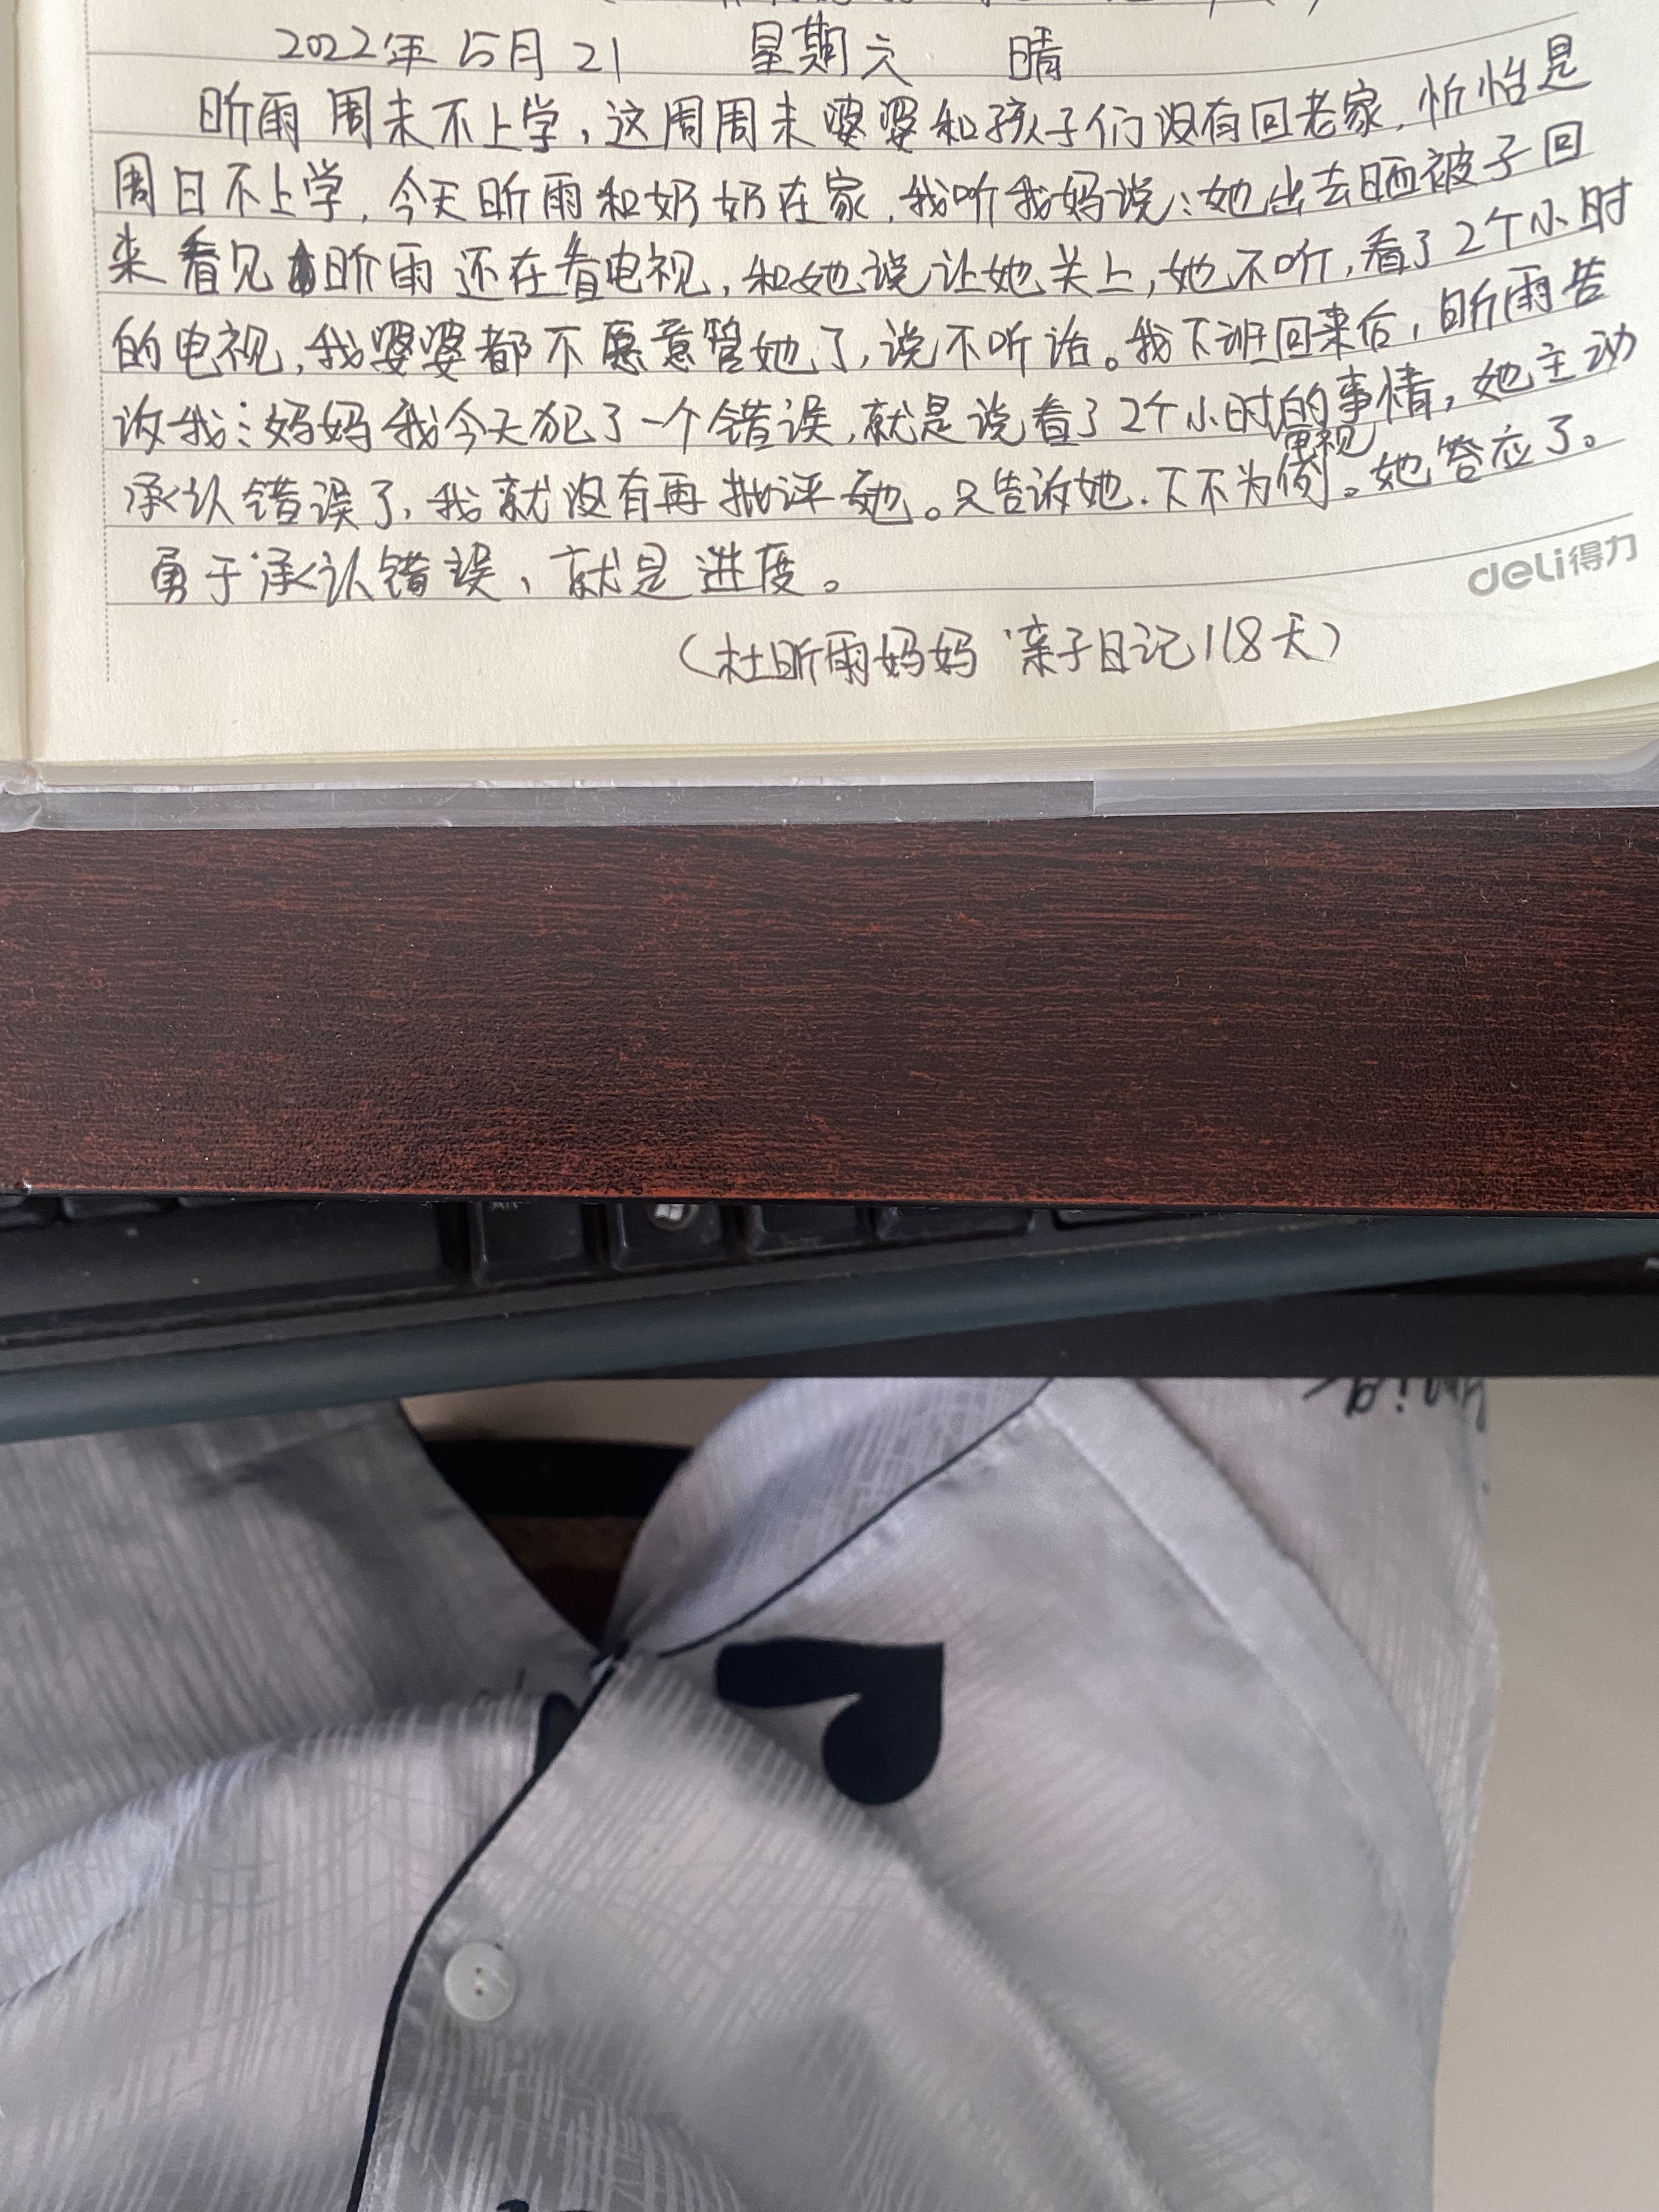 2022年5月21 星期六 晴
昕雨周末不上学,这周周末婆婆和孩子们没有回老家,忻怡是
周日不上学,今天昕雨和奶奶在家,我听我妈说:她出去晒被子回
来看见昕雨还在看电视,和她说让她关上,她不听,看了2个小时
的电视,我婆婆都不愿意管她了,说不听话。我下班回来后,昕雨告
诉我:妈妈我今天犯了一个错误,就是说看了2个小时的事情,她主动
电视
承认错误了,我就没有再批评她。只告诉她.下不为例。她答应了。
勇于承认错误,就是进度。
deli得力
(杜昕雨妈妈 亲子日记118天)